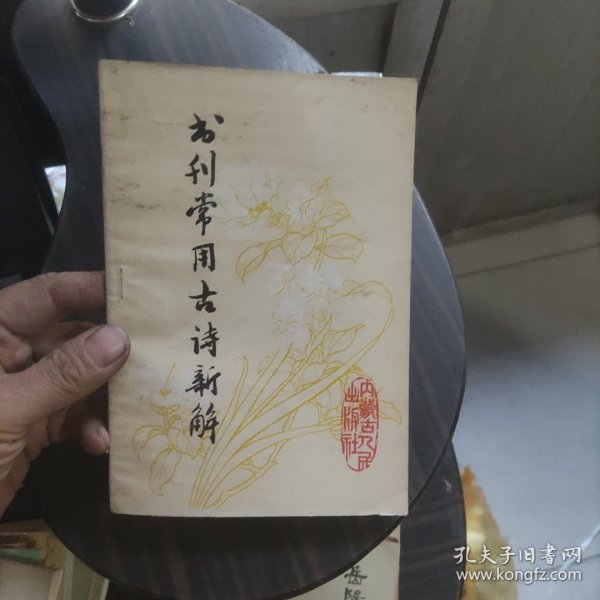 书刊常用古诗新解
内蒙古人民
出版社
孔夫子旧书网
www.kongfz.com